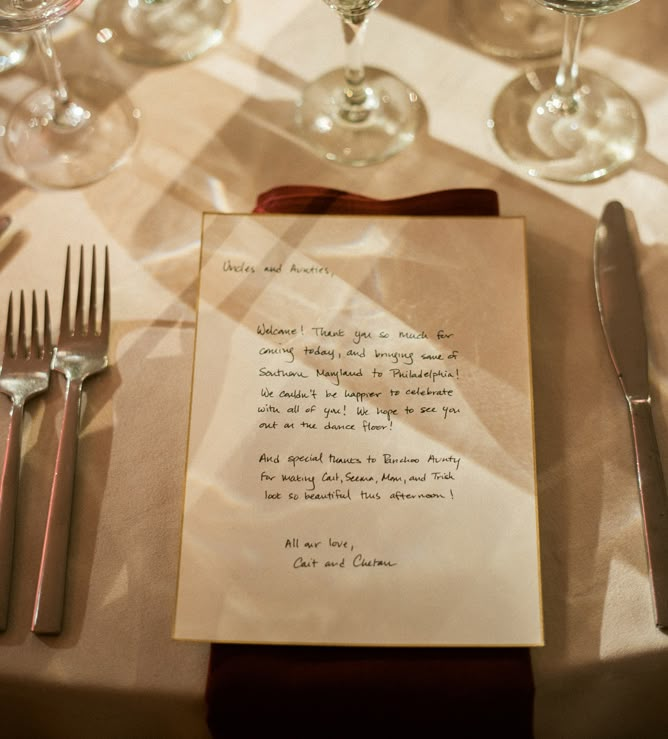 Uncles and Aunties,
Welcome! Thank you so much for
coming today, and bringing some of
Southern Maryland to Philadelphia!
We couldn't be happier to celebrate
with all of you! We hope to see you
out on the dance floor!
And special thanks to Panchoo Aunty
for making Cait, Seema, Mom, and Trish
look so beautiful this afternoon!
All our love,
Cait and Chetan